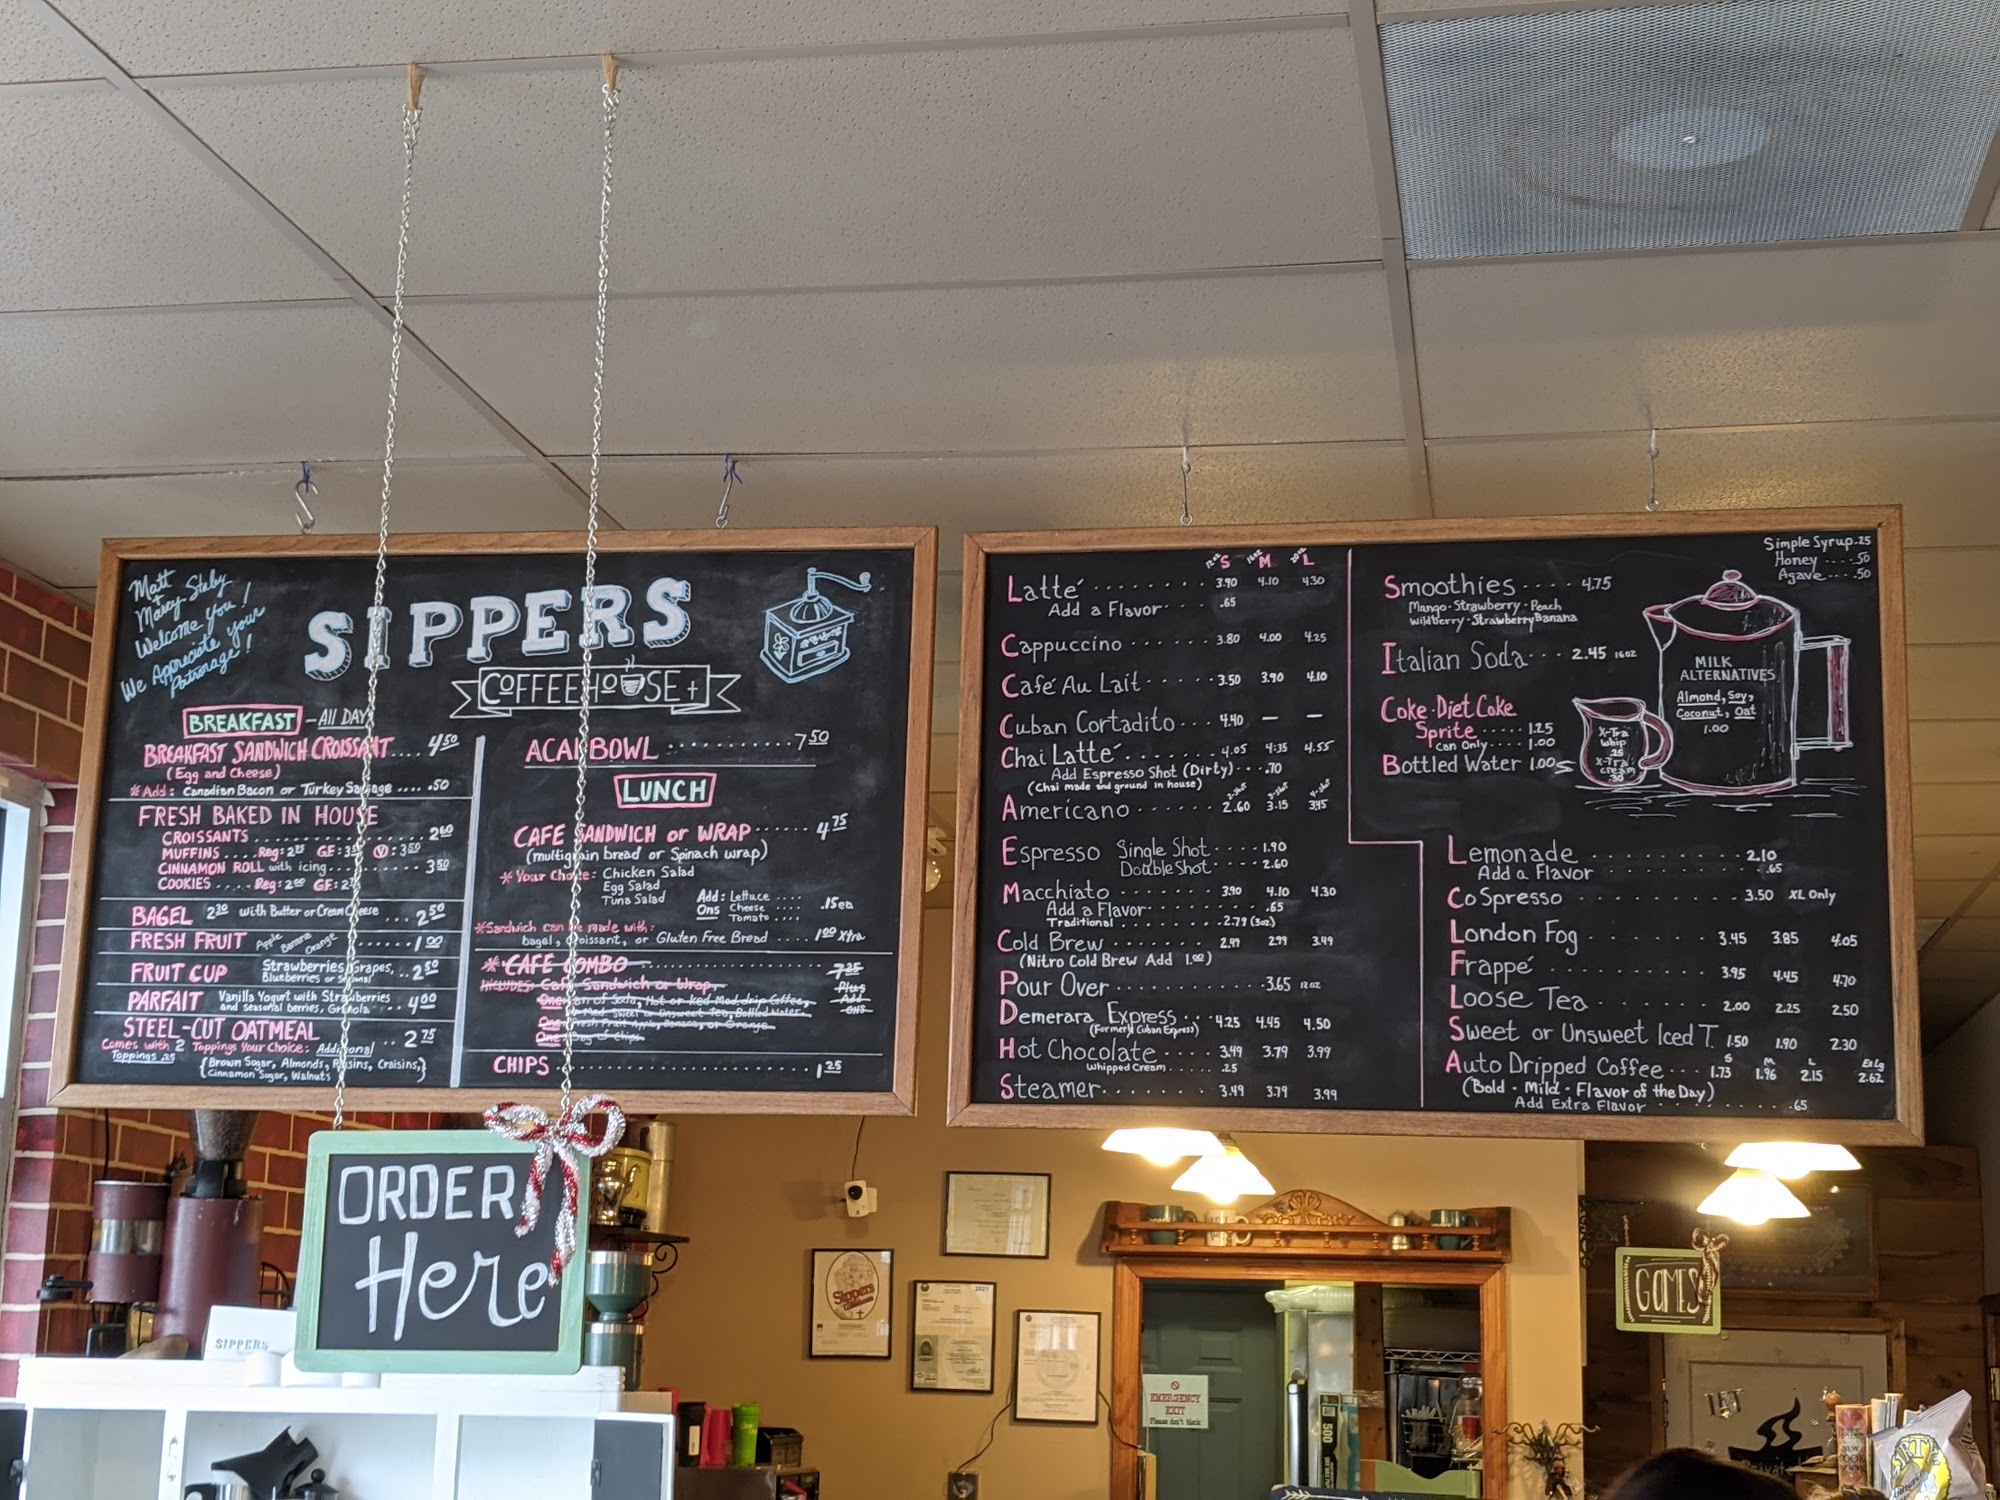 Matt
+
Marcy Staby
Welcome You!
We Appreciate Your
Patronage!
SIPPERS
COFFEEHOUSE +
BREAKFAST - All DAY
BREAKFAST SANDWICH CROISSANT.... 4.50
(Egg and Cheese)
*Add: Canadian Bacon or Turkey Sausage .... .50
FRESH BAKED IN HOUSE
CROISSANTS .................. 2.60
MUFFINS .... Reg: 2.75 GF: 3.50 V: 3.50
CINNAMON ROLL with icing ........ 3.50
COOKIES .... Reg: 2.00 GF:
BAGEL 2.30 with Butter or Cream Cheese ... 2.50
FRESH FRUIT Apple Banana Orange ...... 1.00
FRUIT CUP Strawberries, Grapes, .. 2.50
Blueberries or
PARFAIT Vanilla Yogurt with Strawberries .. 4.00
and seasonal berries, Granola
STEEL-CUT OATMEAL .. 2.75
Comes with 2 Toppings Your Choice: Additional
Toppings .25
{Brown Sugar, Almonds, Raisins, Craisins,
Cinnamon Sugar, Walnuts}
ACAI BOWL ............ 7.50
LUNCH
CAFE SANDWICH or WRAP ...... 4.75
(multigrain bread or Spinach wrap)
*Your Choice: Chicken Salad
Egg Salad
Tuna Salad
Add: Lettuce ....
Ons Cheese .... .15ea
Tomato ....
*Sandwich can be made with:
bagel, Croissant, or Gluten Free Bread .... 1.00 Xtra
*CAFE COMBO .................. 7.25
INCLUDES: Cafe Sandwich or Wrap, Plus
One: Can of Soda, Hot or Iced Med. drip Coffee, Add
Med. Sweet or Unsweet Tea, Bottled Water. ONS
One: Fresh Fruit Apple, Banana, or Orange
One: Bag of Chips
CHIPS .......................... 1.25
12oz S 16oz M 20oz L
Latté ........ 3.90 4.10 4.30
Add a Flavor .... .65
Cappuccino ....... 3.80 4.00 4.25
Café Au Lait ..... 3.50 3.90 4.10
Cuban Cortadito ... 4.40 — —
Chai Latté ........ 4.05 4.35 4.55
Add Espresso Shot (Dirty) .... .70
(Chai made and ground in house)
2-shot 3-shot 4-shot
Americano ........ 2.60 3.15 3.45
Espresso Single Shot .... 1.90
Double Shot .... 2.60
Macchiato ....... 3.90 4.10 4.30
Add a Flavor .... .65
Traditional ........ 2.79 (3oz)
Cold Brew ....... 2.49 2.99 3.49
(Nitro Cold Brew Add 1.00)
Pour Over .......... 3.65 12oz
Demerara Express ... 4.25 4.45 4.50
(Formerly Cuban Express)
Hot Chocolate .... 3.49 3.79 3.99
Whipped Cream .... .25
Steamer ........ 3.49 3.79 3.99
Simple Syrup .25
Honey ---- .50
Agave --- .50
Smoothies .... 4.75
Mango · Strawberry · Peach
Wildberry · Strawberry Banana
Italian Soda ... 2.45 16oz
Coke · Diet Coke
Sprite ..... 1.25
Can Only .... 1.00
Bottled Water 1.00
MILK
ALTERNATIVES
Almond, Soy,
Coconut, Oat
1.00
X-Tra
Whip
.25
X-Tra
Cream
.30
Lemonade ......... 2.10
Add a Flavor ........ .65
CoSpresso ........... 3.50 XL Only
London Fog ........ 3.45 3.85 4.05
Frappé ........... 3.95 4.45 4.70
Loose Tea ......... 2.00 2.25 2.50
Sweet or Unsweet Iced T. 1.50 1.90 2.30
S M L ExLg
Auto Dripped Coffee ... 1.73 1.96 2.15 2.62
(Bold · Mild · Flavor of the Day)
Add Extra Flavor ........ .65
ORDER
Here
SIPPERS
Sippers
2021
EMERGENCY
EXIT
Please don't block
500
GAMES